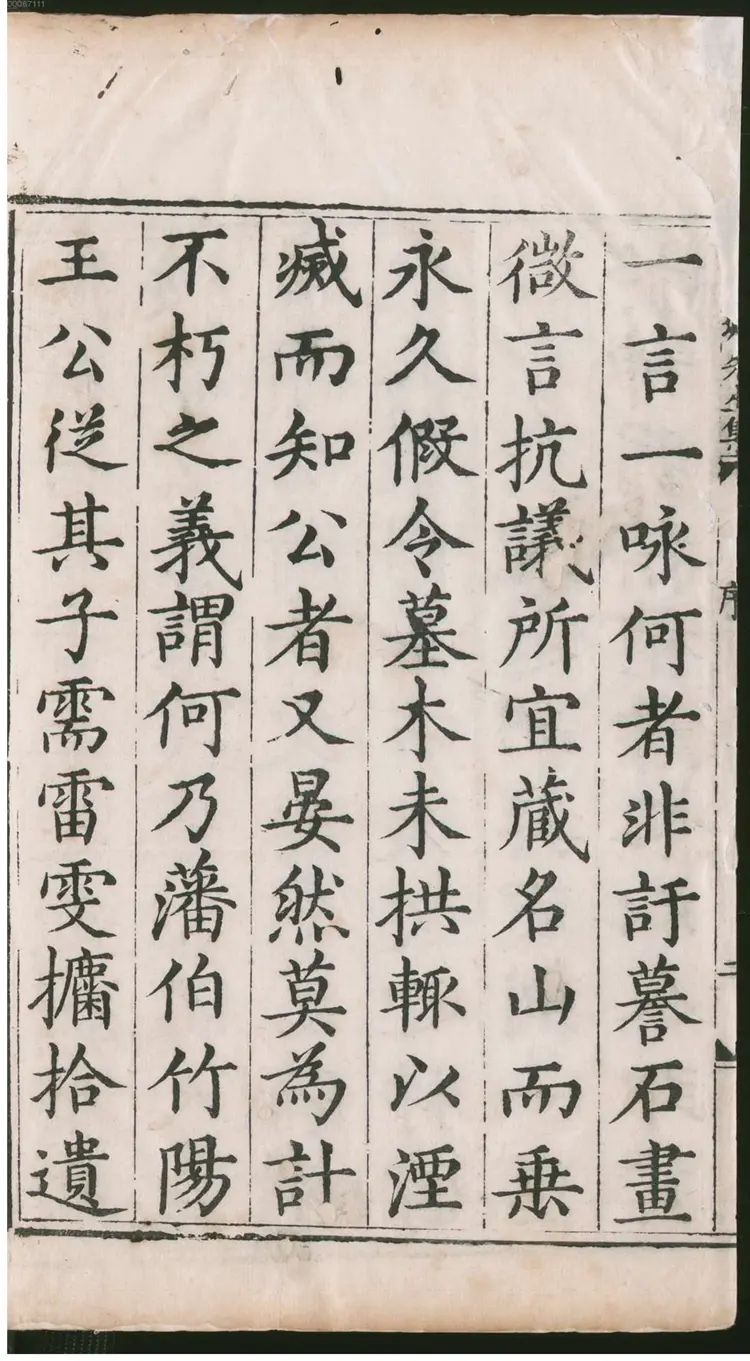 一言一咏何者非訏謩石畫
微言抗議所宜蔵名山而乗
永久假令墓木未拱輙以湮
滅而知公者又晏然莫為計
不朽之義謂何乃藩伯竹陽
王公従其子需雷雯攟拾遺
序
二
00087111